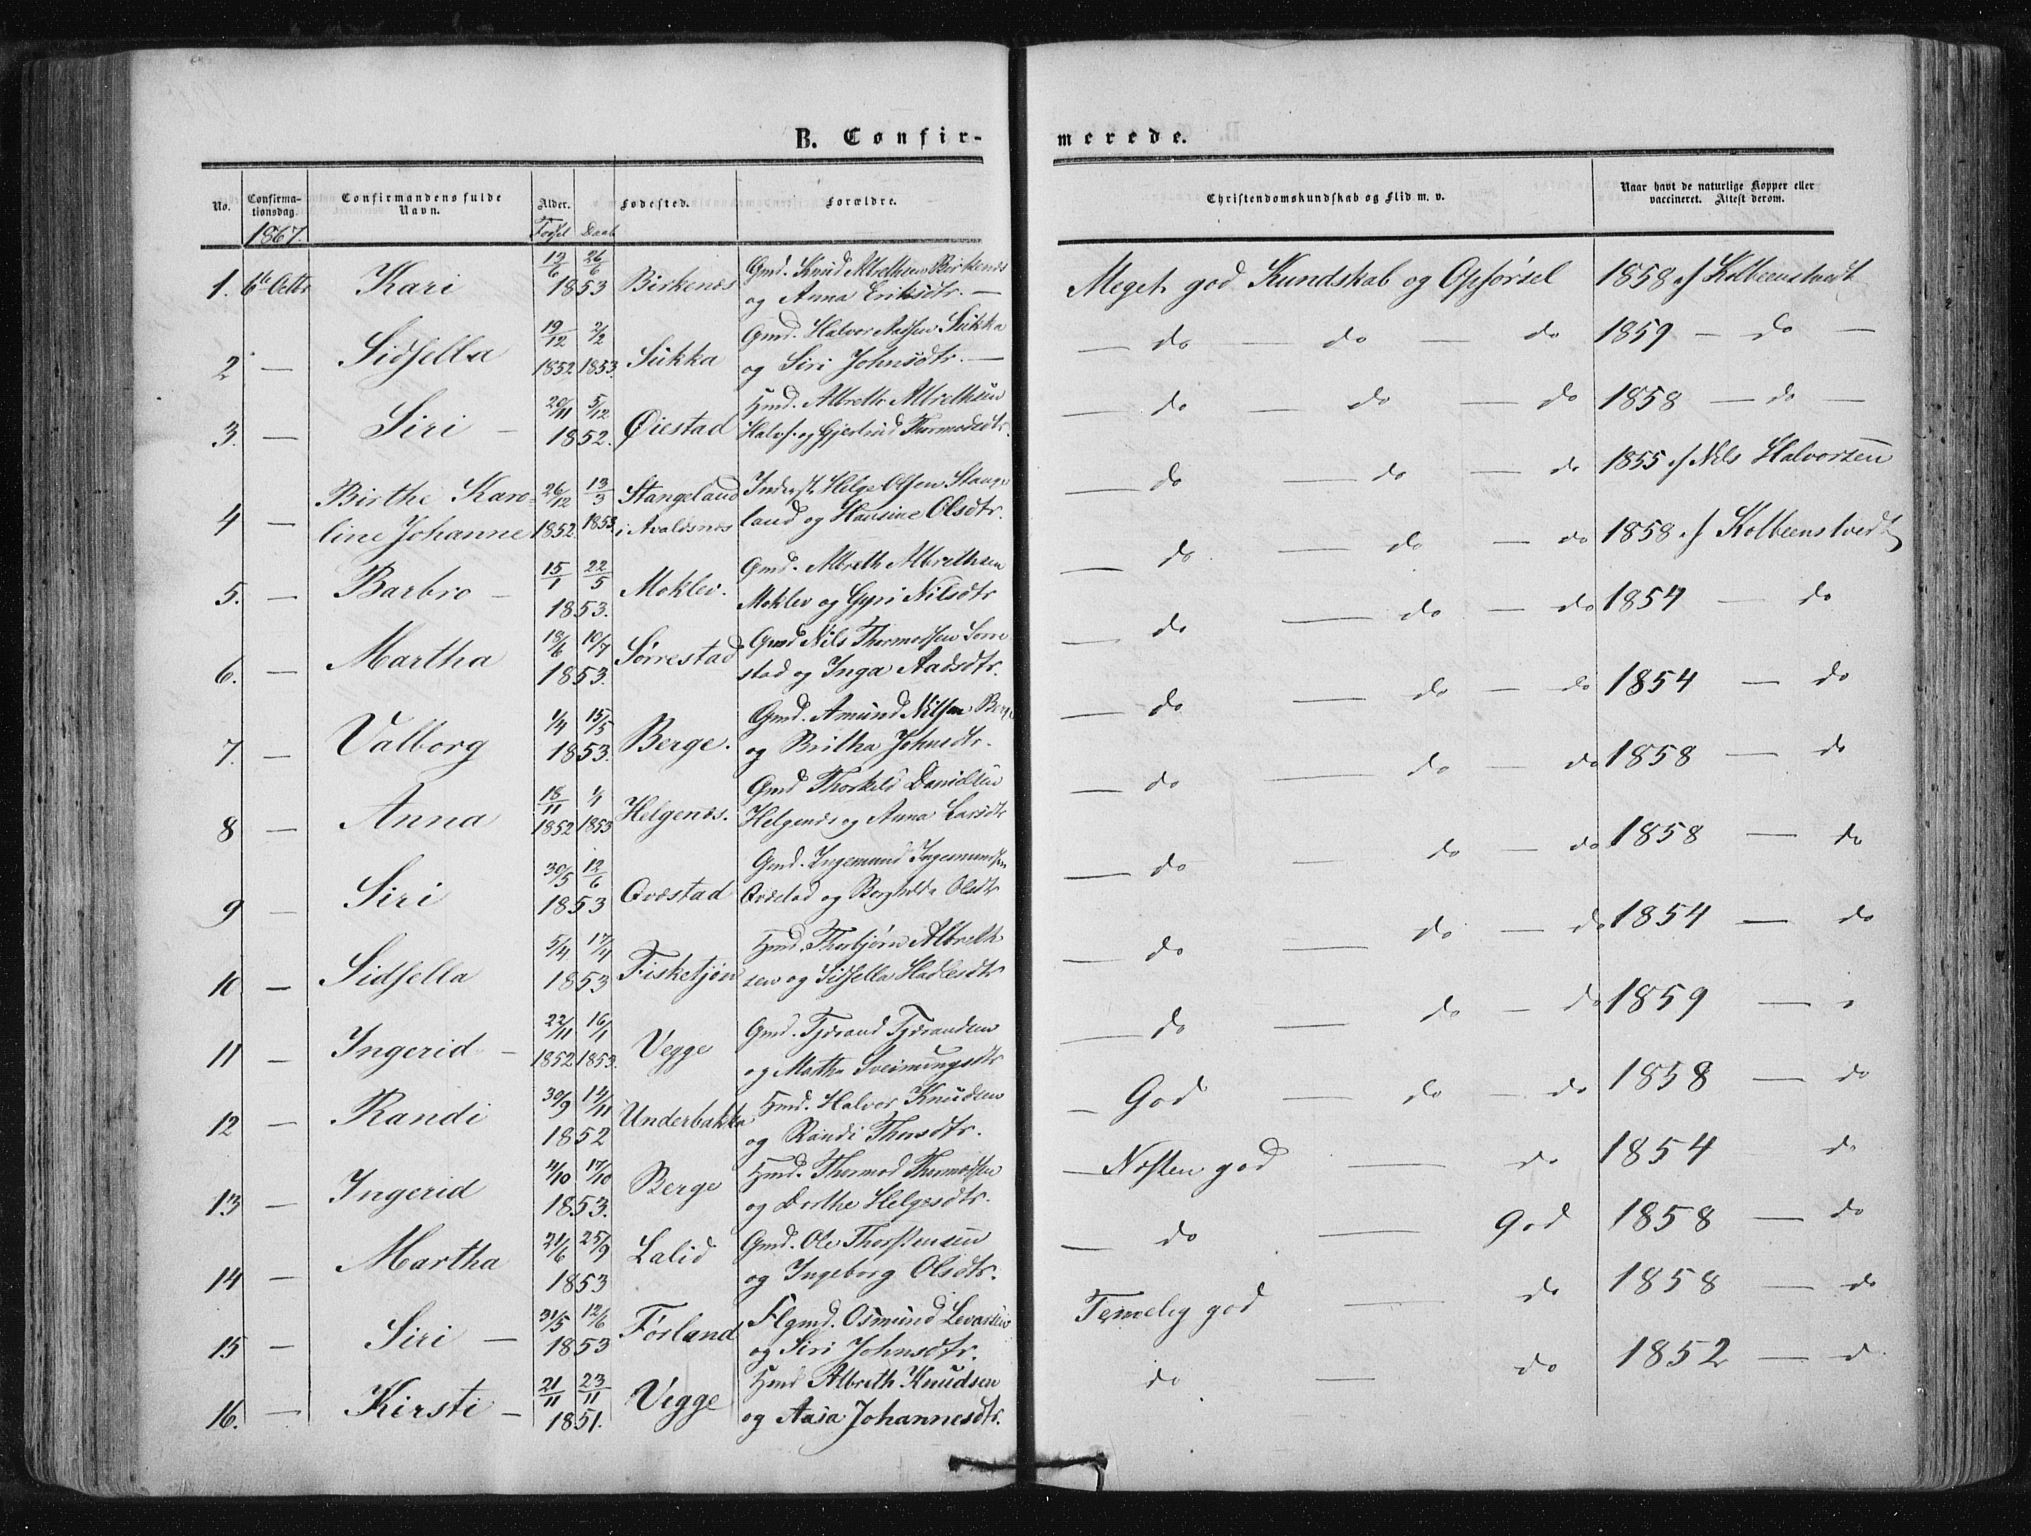 B. Confir-
merede.
No.
Confirma-
tionsdag.
Confirmandens fulde
Navn.
Alder.
Fødested.
Forældre.
Christendomskundskab og Flid m. v.
Naar havt de naturlige Kopper eller
vaccineret. Attest derom.
1867.
Fødsel Daab
1. 6te Octbr Kari 12/6 26/6 1853 Birkenæs Gmd. Knud Albrethsen Birkenæs
og Anna Eriksdtr. —
Meget god Kundskab og Opførsel 1858 af Kolbeenstvedt
2 — Sidsella 19/12 1852 2/2 1853. Sukka Gmd. Halvor Aadsen Sukka
og Siri Johnsdtr. —
— do — do — do 1859 — do —
3. — Siri — 20/11 5/12 1852. Øiestad Hmd. Albreth Albrethsen
Halvs. og Gjertrud Thormodsdtr.
— do — do — do 1858 — do —
4 — Birthe Karo-
line Johanne 26/12 1852 13/3 1853. Stangeland
i Avaldsnæs Inderst Helge Olsen Stange
land og Hansine Olsdtr.
— do — do — do 1855 af Nils Halvorsen
5. — Barbro — 15/1 22/5 1853. Moklev. Gmd. Albreth Albrethsen
Moklev og Gyri Nilsdtr
— do — do — do 1858 af Kolbeenstvedt
6. — Martha 18/6 10/7 1853. Sørrestad Gmd Nils Thormodsen Sørre
stad og Inga Aadsdtr.
— do — do — do 1854 — do
7. — Valborg 1/4 15/5 1853. Berge. Gmd. Amund Nilsen Berge
og Britha Johnsdtr.
— do — do — do 1854 — do
8 — Anna 18/11 1852 1/1 1853 Helgenæs. Gmd Thorkild Danielsen
Helgenæs og Anna Larsdtr
— do — do — do 1858 — do
9 — Siri 30/5 12/6 1853 Qvæstad Gmd. Ingemund Ingemundsen
Qvæstad og Borghilda Olsdtr
— do — do — do 1858 — do
10 — Sidsella 5/4 17/4 1853 Fisketjøn Hmd. Thorbjørn Albreth
sen og Sidsella Hadlesdtr
— do — do — do 1854 — do
11 — Ingerid — 22/11 1852 16/1 1853. Vegge Gmd. Tjærand Tjærandsen
og Martha Sveinungsdtr
— do — do — do 1859 —
12 — Randi 30/9 14/11 1852 Underbakka Hmd. Halvor Knudsen
og Randi Thorsdtr.
— God — do — do 1858 — do
13 — Ingerid 4/10 17/10 1853. Berge Hmd. Thormod Thormodsen
og Dorthe Helgesdtr.
— Næsten god — do 1854 — do
14 — Martha 21/6 25/9 1853 Lalid Gmd. Ole Thorstensen
og Ingeborg Olsdtr.
— do — God 1858 — do
15 — Siri — 31/5 12/6 1853 Førland Flgmd. Osmund Levardsen
og Siri Johnsdtr.
Temelig god — do 1858 — do
16. — Kirsti — 21/11 23/11 1851. Vegge Hmd Albreth Knudsen
og Aasa Johannesdtr.
do — do 1852 — d